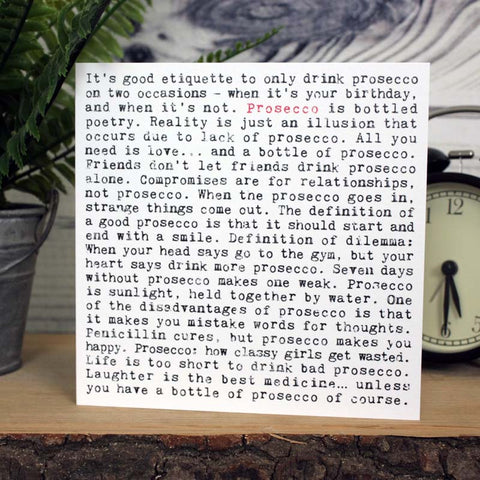 It's good etiquette to only drink prosecco
on two occasions – when it's your birthday,
and when it's not. Prosecco is bottled
poetry. Reality is just an illusion that
occurs due to lack of prosecco. All you
need is love... and a bottle of prosecco.
Friends don't let friends drink prosecco
alone. Compromises are for relationships,
not prosecco. When the prosecco goes in,
strange things come out. The definition of
a good prosecco is that it should start and
end with a smile. Definition of dilemma:
When your head says go to the gym, but your
heart says drink more prosecco. Seven days
without prosecco makes one weak. Prosecco
is sunlight, held together by water. One
of the disadvantages of prosecco is that
it makes you mistake words for thoughts.
Penicillin cures, but prosecco makes you
happy. Prosecco: how classy girls get wasted.
Life is too short to drink bad prosecco.
Laughter is the best medicine... unless
you have a bottle of prosecco of course.
12
1
2
3
4
5
6